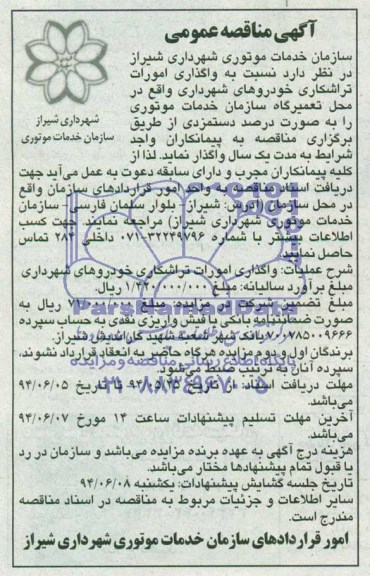 آگهی مناقصه عمومی
شهرداری شیراز
سازمان خدمات موتوری
سازمان خدمات موتوری شهرداری شیراز
در نظر دارد نسبت به واگذاری امورات
تراشکاری خودروهای شهرداری واقع در
محل تعمیرگاه سازمان خدمات موتوری
را به صورت درصد دستمزدی از طریق
برگزاری مناقصه به پیمانکاران واجد
شرایط به مدت یک سال واگذار نماید. لذا از
کلیه پیمانکاران مجرب و دارای سابقه دعوت به عمل می‌آید جهت
دریافت اسناد مناقصه به واحد امور قراردادهای سازمان واقع
در محل سازمان (آدرس: شیراز - بلوار سلمان فارسی - سازمان
خدمات موتوری شهرداری شیراز) مراجعه نمایند. جهت کسب
اطلاعات بیشتر با شماره ۳۲۲۴۹۷۹۶-۰۷۱ داخلی ۲۸۴ تماس
حاصل نمایند.
شرح عملیات: واگذاری امورات تراشکاری خودروهای شهرداری
مبلغ برآورد سالیانه: مبلغ ۱/۴۲۰/۰۰۰/۰۰۰ ریال.
مبلغ تضمین شرکت در مزایده: مبلغ ۷۱/۰۰۰/۰۰۰ ریال به
صورت ضمانتنامه بانکی یا فیش واریزی نقدی به حساب سپرده
بانک شهر شعبه شهید کاراندیش شیراز.
برندگان اول و دوم مزایده هرگاه حاضر به انعقاد قرارداد نشوند،
سپرده آنان به ترتیب ضبط می‌شود.
مهلت دریافت اسناد: از تاریخ تا تاریخ ۹۴/۰۶/۰۵
می‌باشد.
آخرین مهلت تسلیم پیشنهادات ساعت ۱۴ مورخ ۹۴/۰۶/۰۷
می‌باشد.
هزینه درج آگهی به عهده برنده مزایده می‌باشد و سازمان در رد
یا قبول تمام پیشنهادها مختار می‌باشد.
تاریخ جلسه گشایش پیشنهادات: یکشنبه ۹۴/۰۶/۰۸
سایر اطلاعات و جزئیات مربوط به مناقصه در اسناد مناقصه
مندرج است.
امور قراردادهای سازمان خدمات موتوری شهرداری شیراز
ParsNamadData
پایگاه اطلاع رسانی مناقصه و مزایده